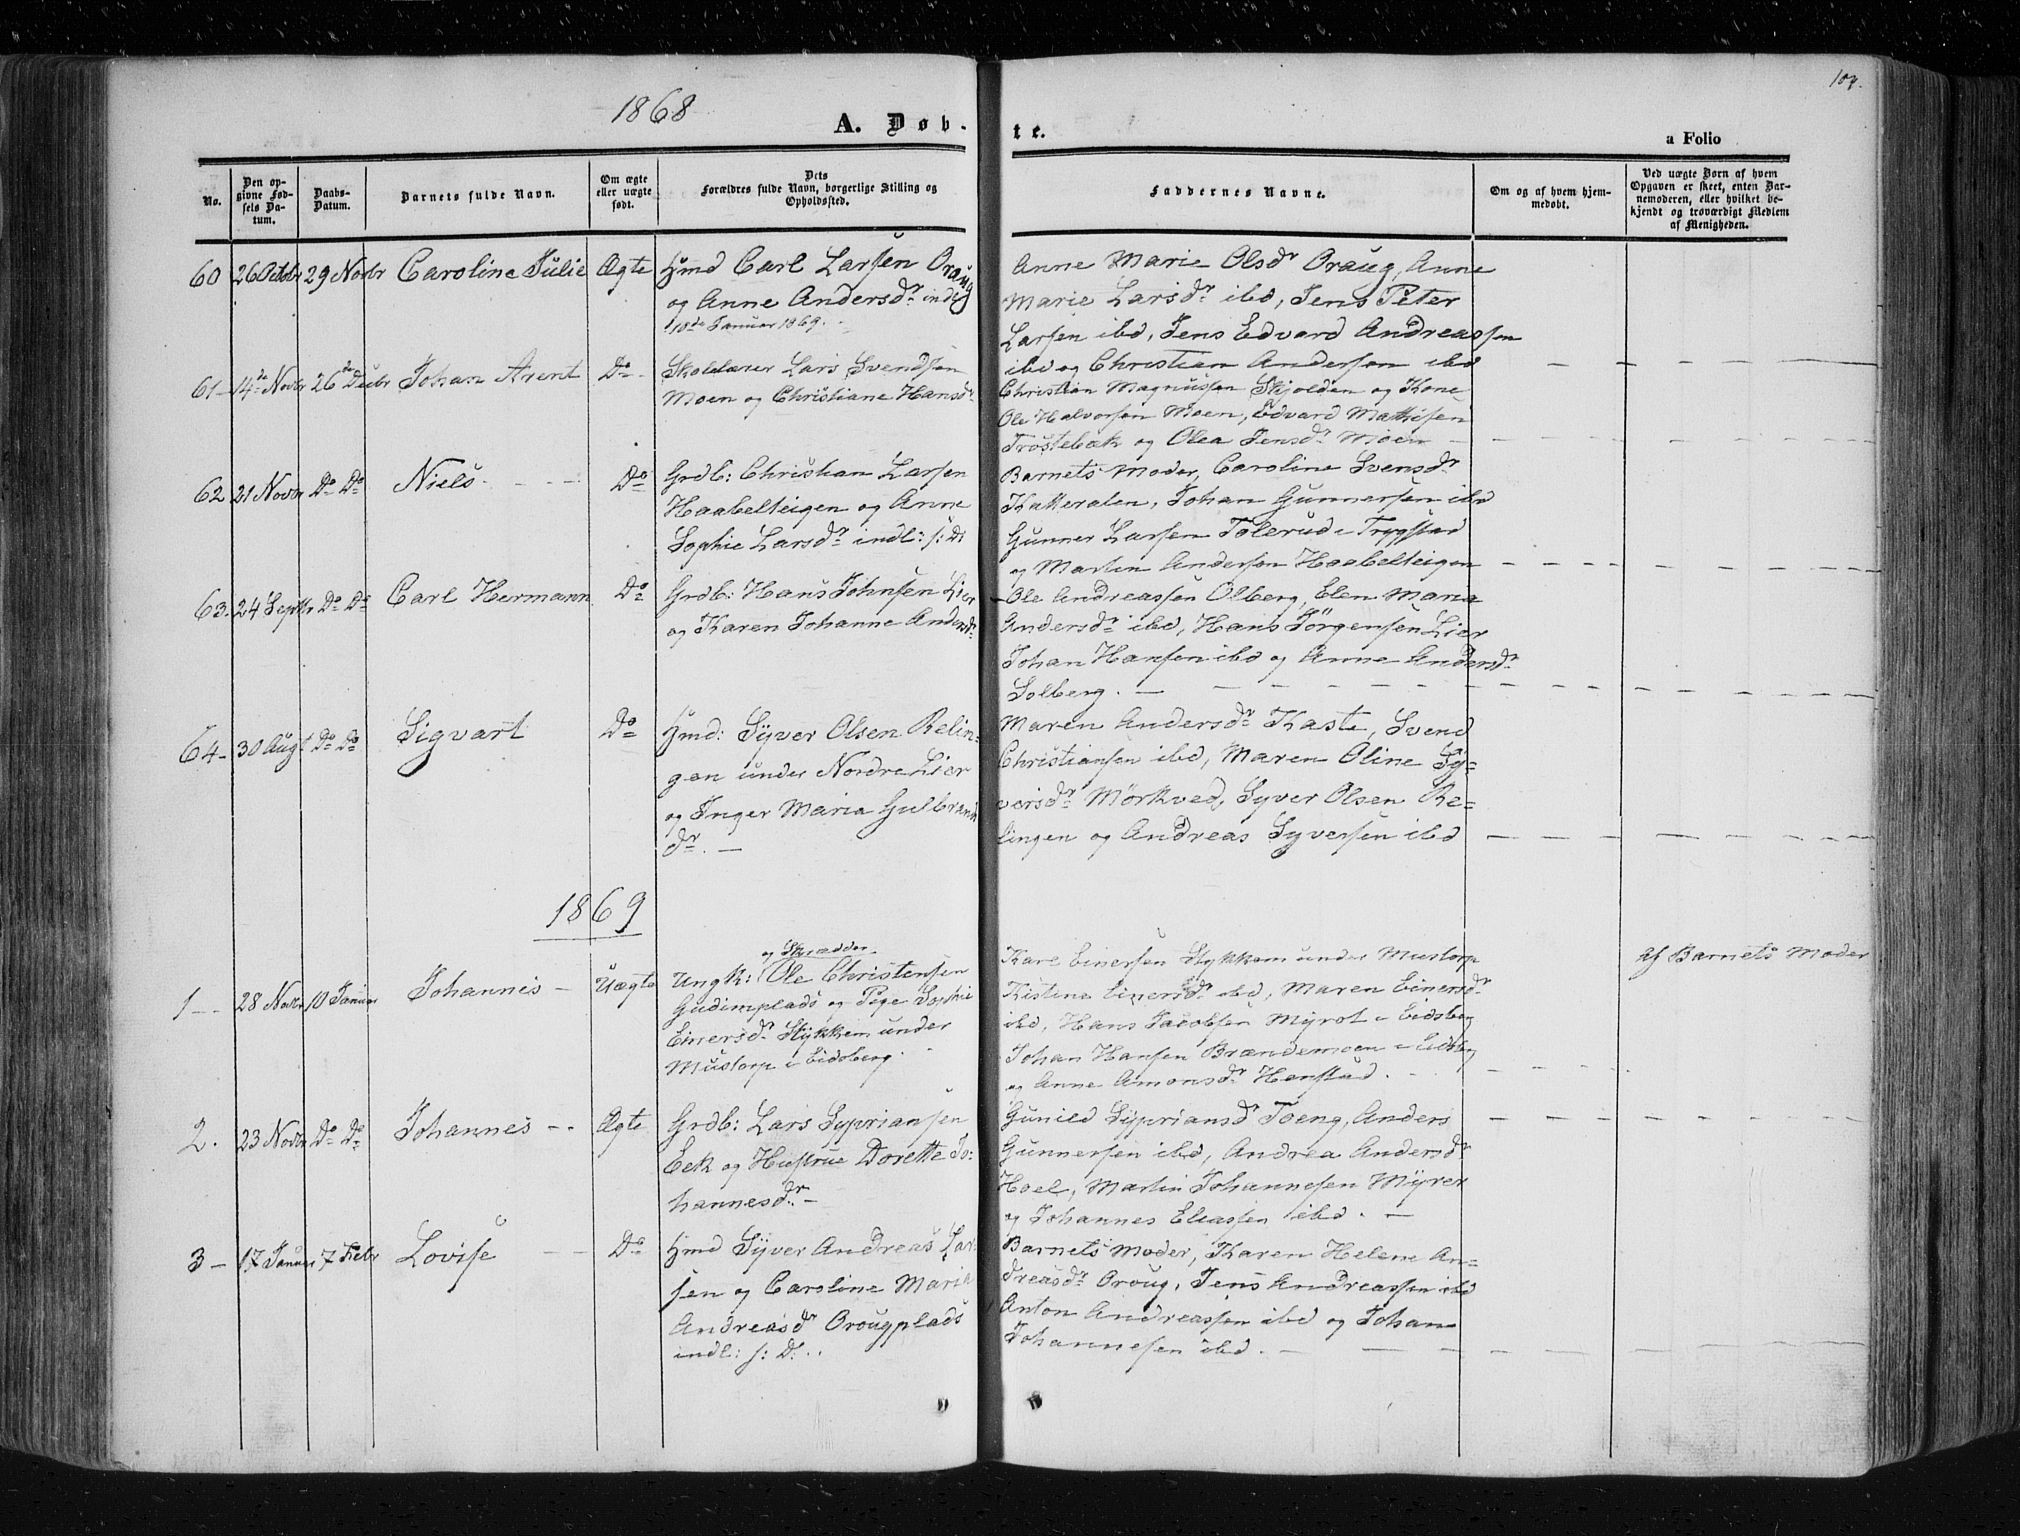 109.
1868
A. Døb-
te.
a Folio
No.
Den op-
givne Fød-
sels Da-
tum.
Daabs-
Datum.
Barnets fulde Navn.
Om ægte
eller uægte
født.
Dets
Forældres fulde Navn, borgerlige Stilling og
Opholdssted.
Faddernes Navne.
Om og af hvem hjem-
medøbt.
Ved uægte Børn af hvem
Opgaven er skeet, enten Bar-
nemoderen, eller hvilket be-
kjendt og troværdigt Medlem
af Menigheden.
60 26 Octobr 29 Novbr Caroline Julie Ægte
Hmd Carl Larsen Oraug
og Anne Andersdr indl
18de Januar 1869.
Anne Marie Olsdr Oraug, Anne
Marie Larsdr ibd, Jens Peter
Larsen ibd, Jens Edvard Andreassen
ibd og Christian Andersen ibd
61 - 14de Novbr 26de Decbr Johan Arent Do
Skolelærer Lars Svendsen
Moen og Christiane Hansdr
Christian Magnussen Skjolden og Kone
Ole Halvorsen Moen, Edvard Mathisen
Trøstebæk og Olea Jensdr Moen
62 21 Novbr Do Do Niels Do
Grdb: Christian Larsen
Haabelteigen og Anne
Sophie Larsdr indl: s: D:
Barnets Moder, Caroline Svensdr
Katteralen, Johan Gunnersen ibd
Gunner Larsen Tolerud i Trygstad
og Martin Andersen Haabelteigen
63. 24 Septbr Do Do Carl Hermann Do
Grdb: Hans Johnsen Lier
og Karen Johanne Andersdr
Ole Andreassen Olberg, Elen Maria
Andersdr ibd, Hans Jörgensen Lier
Johan Hansen ibd og Anne Andersdr
Solberg.
64 - 30 Augt Do Do Sigvart Do
Hmd: Syver Olsen Relin-
gen under Nordre Lier
og Inger Maria Gulbrands
dr.
Maren Andersdr Kaste, Svend
Christiansen ibd, Maren Oline Sy-
versdr Mörkved, Syver Olsen Re-
lingen og Andreas Syversen ibd
1869
1 - - 28 Novbr 10 Januar Johannes - Uægte
og Skrædder
Ungk: Ole Christensen
Gudimplads og Pige Sophie
Einersdr Stykkem under
Mustorp i Eidsberg.
Kare Einersen Stykkem under Mustorp
Kistine Einersdr ibd, Maren Einersdr
ibd, Hans Jacobsen Myrot i Eidsberg
Johan Hansen Brændemoen i Eidsbg
og Anne Amonsdr Henstad.
af Barnets Moder
2. 23 Novbr Do Do Johannes - - Ægte
Grdb: Lars Sypriansen
Eek og Hustrue Dorette Jo:
hannesdr
Gunild Sypriansdr Toeng, Anders
Gunnersen ibd, Andrea Andersdr
Hoel, Martin Johannesen Myrer
og Johannes Eliassen ibd.
3 - 17 Januar 7 Febr Lovise Do
Hmd Syver Andreas Lar-
sen og Caroline Maria
Andreasdr Orougplads
indl: s: D:
Barnets Moder, Karen Helene An-
dreasdr Oroug, Jens Andreassen ibd
Anton Andreassen ibd og Johan
Johannesen ibd.